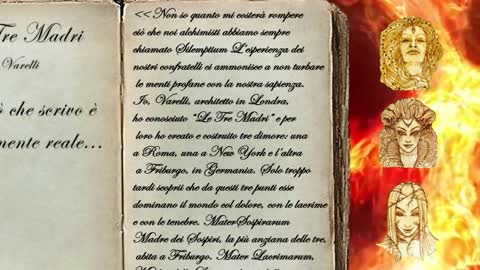 Tre Madri
Varelli
che scrivo è
mente reale...
<<Non so quanto mi costerà rompere
ciò che noi alchimisti abbiamo sempre
chiamato Silemptium L'esperienza dei
nostri confratelli ci ammonisce a non turbare
le menti profane con la nostra sapienza.
Io, Varelli, architetto in Londra,
ho conosciuto "Le Tre Madri" e per
loro ho creato e costruito tre dimore: una
a Roma, una a New York e l'altra
a Friburgo, in Germania. Solo troppo
tardi scoprii che da questi tre punti esse
dominano il mondo col dolore, con le lacrime
e con le tenebre. MaterSospirarum
Madre dei Sospiri, la più anziana delle tre,
abita a Friburgo. Mater Lacrimarum,